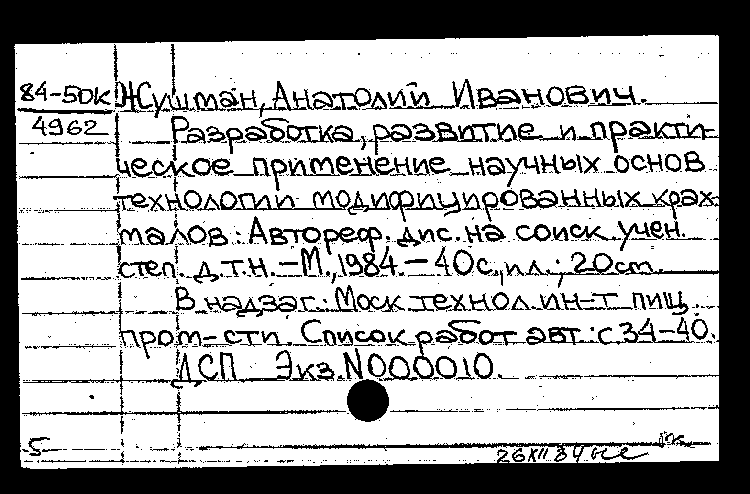 84-5DK Жушман, Анатолий Иванович.
4962 Разработка, развитие и практи-
ческое применение научных основ
технологии модифицированных крах-
малов: Автореф. дис. на соиск. учен.
степ. д.т.н. - М., 1984. - 40с., ил.; 20см.
В надзаг.: Моск технол ин-т пищ.
пром-сти. Список работ авт.: с 34-40.
ДСП Экз. N000010.
5
26 XII 84